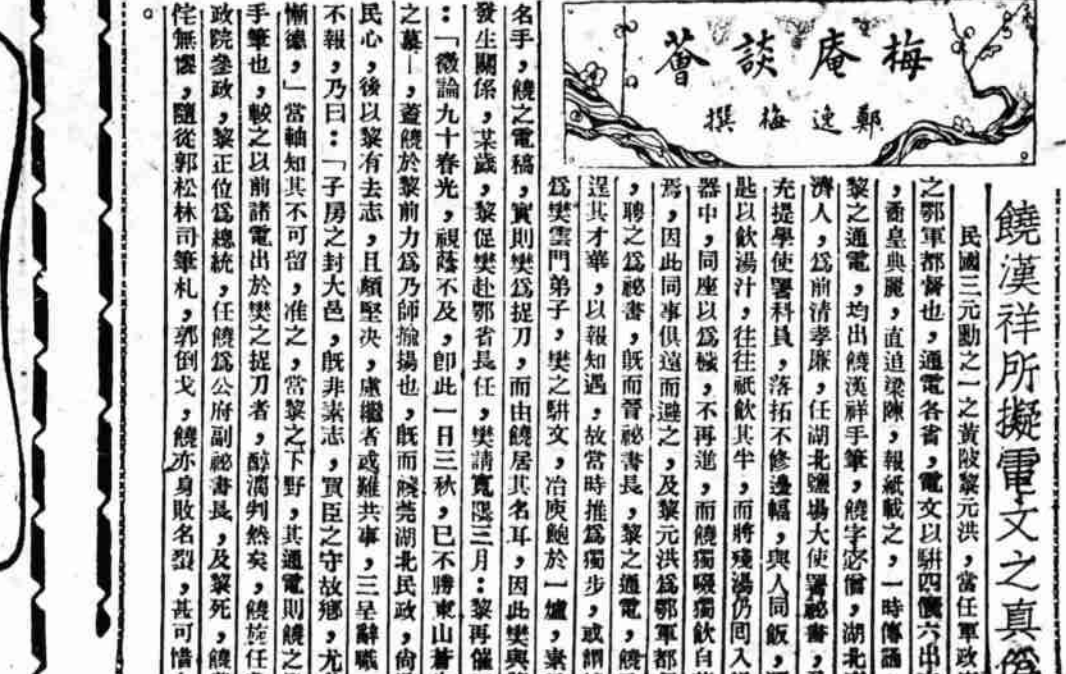 梅庵談薈
鄭逸梅撰
饒漢祥所擬電文之真
民國三元勳之一之黃陂黎元洪,當任軍政
之鄂軍都督也,通電各省,電文以駢四儷六出
,喬皇典麗,直追梁陳,報紙載之,一時傳誦
黎之通電,均出饒漢祥手筆,饒字宓僧,湖北
濟人,爲前清孝廉,任湖北鹽場大使署祕書,
充提學使署科員,落拓不修邊幅,與人同飯,
匙以飲湯汁,往往祇飲其半,而將殘湯仍囘入
器中,同座以爲穢,不再進,而饒獨啜獨飲自
焉,因此同事俱遠而避之,及黎元洪爲鄂軍都
,聘之爲祕書,旣而晉祕書長,黎之通電,饒
逞其才華,以報知遇,故當時推爲獨步,或謂
爲樊雲門弟子,樊之駢文,冶庾鮑於一爐,
名手,饒之電稿,實則樊爲捉刀,而由饒居其名耳,因此樊與
發生關係,某歲,黎促樊赴鄂省長任,樊請寬限三月:黎再催
:「徵論九十春光,視蔭不及,卽此一日三秋,已不勝東山蒼
之慕—,蓋饒於黎前力爲乃師揄揚也,旣而饒莞湖北民政,尙
民心,後以黎有去志,且頗堅决,慮繼者或難共事,三呈辭職
不報,乃曰:「子房之封大邑,旣非素志,買臣之守故鄉,尤
慚德,」當軸知其不可留,准之,當黎之下野,其通電則饒之
手筆也,較之以前諸電出於樊之捉刀者,醇濁判然矣,饒旋任
政院參政,黎正位爲總統,任饒爲公府副祕書長,及黎死,饒
侘無憀,隨從郭松林司筆札,郭倒戈,饒亦身敗名裂,甚可惜
。